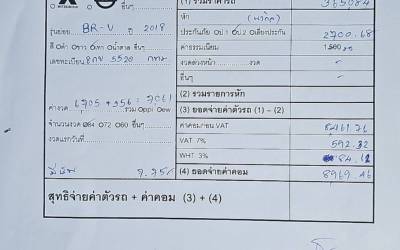 (1) รวมราคารถ 365084
รุ่นย่อย BR-V ปี 2018
หัก
สี ดำ ขาว เทา น้ำตาล อื่นๆ
ประกันภัย ป.1 ป.2 เสี่ยงประกัน 2700.68
เลขทะเบียน 5520 กทม
ค่าธรรมเนียม 1,500
งวดล่วงหน้า งวด -
อื่นๆ -
(2) รวมรายการหัก
ค่างวด 6705 + 356 = 7061 รวม
(3) ยอดจ่ายค่าตัวรถ (1) - (2)
จำนวนงวด 84 72 60 อื่นๆ
ค่าคอมก่อน VAT 8461.76
งวดแรกวันที่
VAT 7% 592.32
WHT. 3% 84.62
(4) ยอดจ่ายค่าคอม 8969.46
สุทธิจ่ายค่าตัวรถ + ค่าคอม (3) + (4)